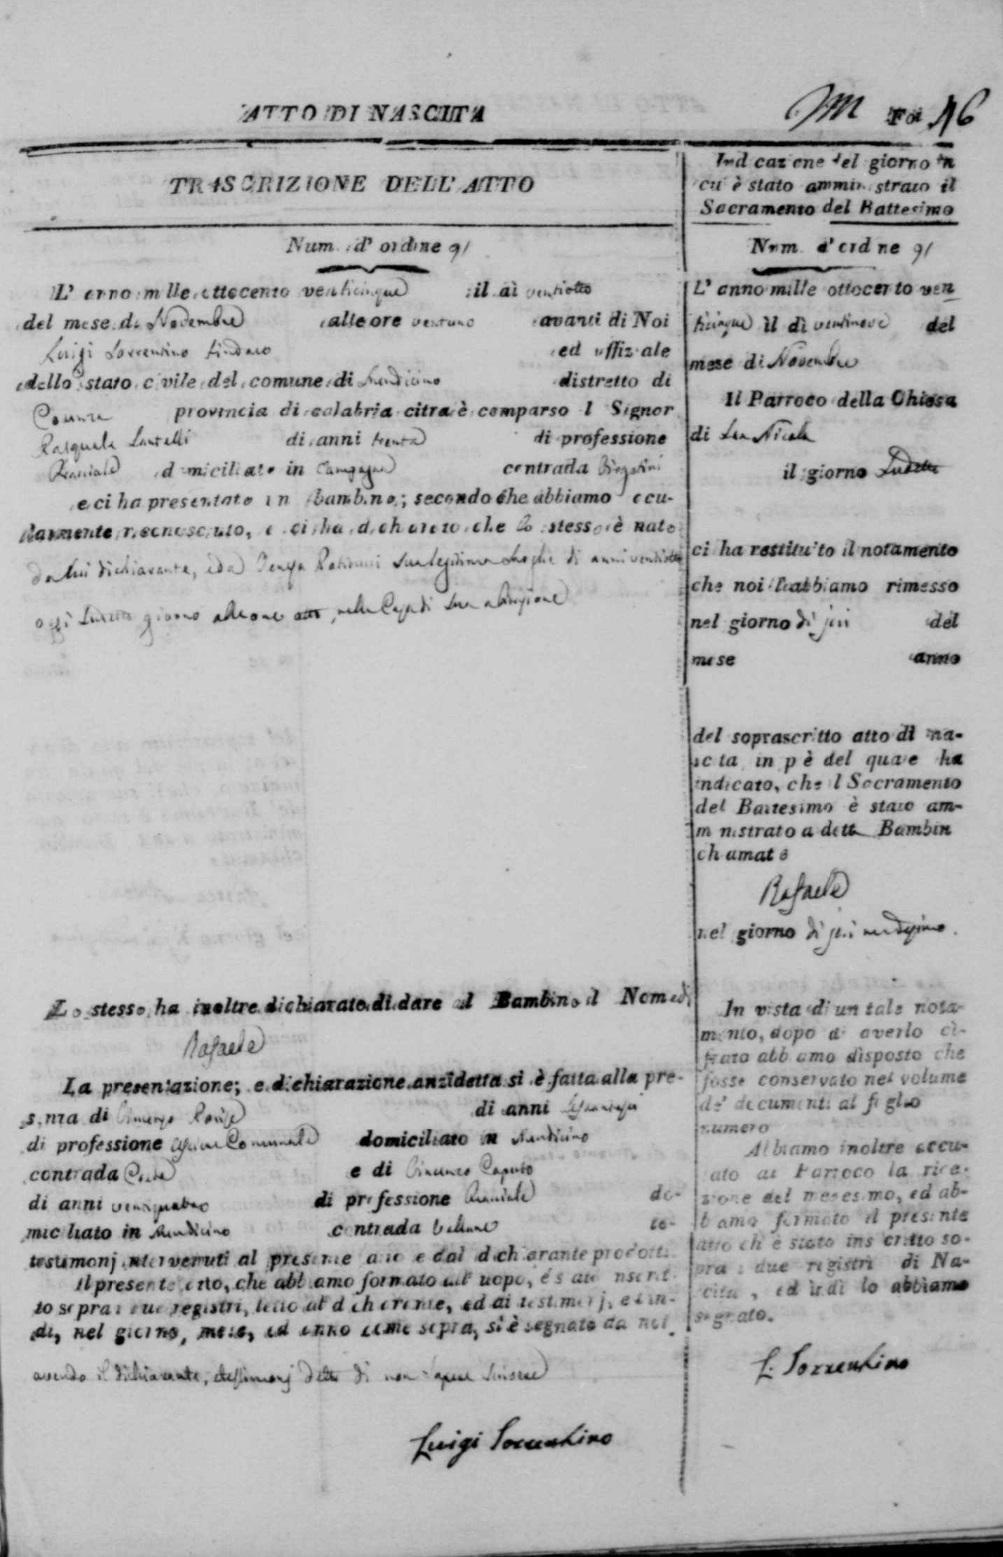 ATTO DI NASCITA
Fol 46
TRASCRIZIONE DELL' ATTO
Num. d' ordine 91
L' anno mille ottocento venticinque il dì ventiotto
del mese di Novembre alle ore ventuno avanti di Noi
Luigi Sorrentino Sindaco ed uffiziale
dello stato civile del comune di Mendicino distretto di
Cosenza provincia di calabria citra è comparso l Signor
Pasquale di anni trenta di professione
domiciliato in Campagna contrada
e ci ha presentato un bambino; secondo che abbiamo ocu-
larmente riconosciuto, e ci ha dichiarato che lo stesso è nato
da lui dichiarante, e da sua legittima moglie di anni ventiotto
oggi giorno alle ore otto, nella Casa di sua abitazione
Lo stesso ha inoltre dichiarato di dare al Bambino il Nome di
Rafaele
La presentazione, e dichiarazione anzidetta si è fatta alla pre-
senza di di anni
di professione Comunale domiciliato in Mendicino
contrada e di Vincenzo Caputo
di anni ventiquattro di professione do-
miciliato in Mendicino contrada te-
testimonj intervenuti al presente atto e dal dichiarante prodotti.
Il presente atto, che abbiamo formato all' uopo, è stato inscrit-
to sopra i due registri, letto al dichiarante, ed ai testimonj, ed in-
di, nel giorno, mese, ed anno come sopra, si è segnato da noi
avendo il dichiarante, e testimonj detto di non sapere scrivere
Luigi Sorrentino
Indicazione del giorno in
cui è stato amministrato il
Sacramento del Battesimo
Num. d' ordine 91
L' anno mille ottocento ven
ticinque il dì ventinove del
mese di Novembre
Il Parroco della Chiesa
di San Nicola
il giorno
ci ha restituito il notamento
che noi l' abbiamo rimesso
nel giorno di jeri del
mese anno
del soprascritto atto di na-
scita in piè del quale ha
indicato, che l Sacramento
del Battesimo è stato am-
ministrato a detto Bambin
chiamato
Rafaele
nel giorno di jeri medesimo.
In vista di un tale nota-
mento, dopo di averlo ci-
frato abbiamo disposto che
fosse conservato nel volume
de' documenti al foglio
numero
Abbiamo inoltre accu-
sato al Parroco la rice-
zione del medesimo, ed ab-
biamo formato il presente
atto ch' è stato inscritto so-
pra i due registri di Na-
scita, ed indi lo abbiamo
segnato.
L. Sorrentino